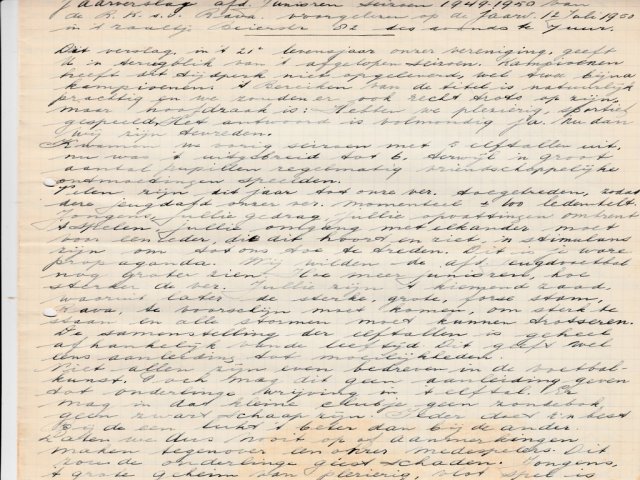 Jaarverslag afd. Junioren Seizoen 1949-1950 van
de R.K.s.v. Rava. voorgelezen op de Jaarv. 12 Juli 1950
in 't Beierstr 82 des avonds te 7 uur.
Dit verslag, in 't 21e levensjaar onzer vereniging, geeft
U in terugblik van 't afgelopen seizoen. Kampioenen
heeft dit tijdperk niet opgeleverd, wel twee bijna
kampioenen. 't Bereiken van de titel is natuurlijk
prachtig en we zouden er ook recht trots op zijn,
maar hoofdzaak is: Hebben we plezierig, sportief
gespeeld. Het antwoord is volmondig ja. nu dan
wij zijn tevreden.
Kwamen we vorig seizoen met elftallen uit,
nu was 't uitgebreid tot 6. terwijl 'n groot
aantal pupillen regelmatig vriendschappelijke
ontmoetingen speelden.
Velen zijn dit jaar tot onze ver. toegetreden, zodat
deze jeugdafd onzer ver. momenteel ± 100 leden telt.
Jongens, jullie gedrag jullie opvattingen omtrent
't spelen jullie omgang met elkander moet
voor een ieder, die dit hoort en ziet 'n stimulans
zijn om tot ons toe te treden. Dit is 'n ware
propaganda. Wij wilden de afd. jeugdvoetbal
nog groter zien. Hoe meer junioren, hoe
sterker de ver. Jullie zijn 't kiemend zaad,
waaruit later de sterke, grote, forse stam,
Rava, te voorschijn moet komen, om sterk te
staan en alle stormen moet kunnen trotseren.
De samenstelling der elftallen is geheel
afhankelijk van de leeftijd Dit geeft wel
eens aanleiding tot moeilijkheden.
Niet allen zijn even bedreven in de voetbal-
kunst. Toch mag dit geen aanleiding geven
tot onderlinge wrijving in 't elftal. Er
mag in dat kleine clubje geen zondebok,
geen zwart schaap zijn. Ieder doet z'n best
Bij de een lukt 't beter dan bij de ander.
Laten we dus nooit op of aanmerkingen
maken tegenover een onzer medespelers. Dit
zou de onderlinge geest schaden. Jongens,
't grote geheim van plezierig, vlot spel is